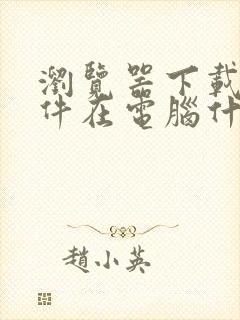 瀏覽器下載
件在電腦什
趙小英